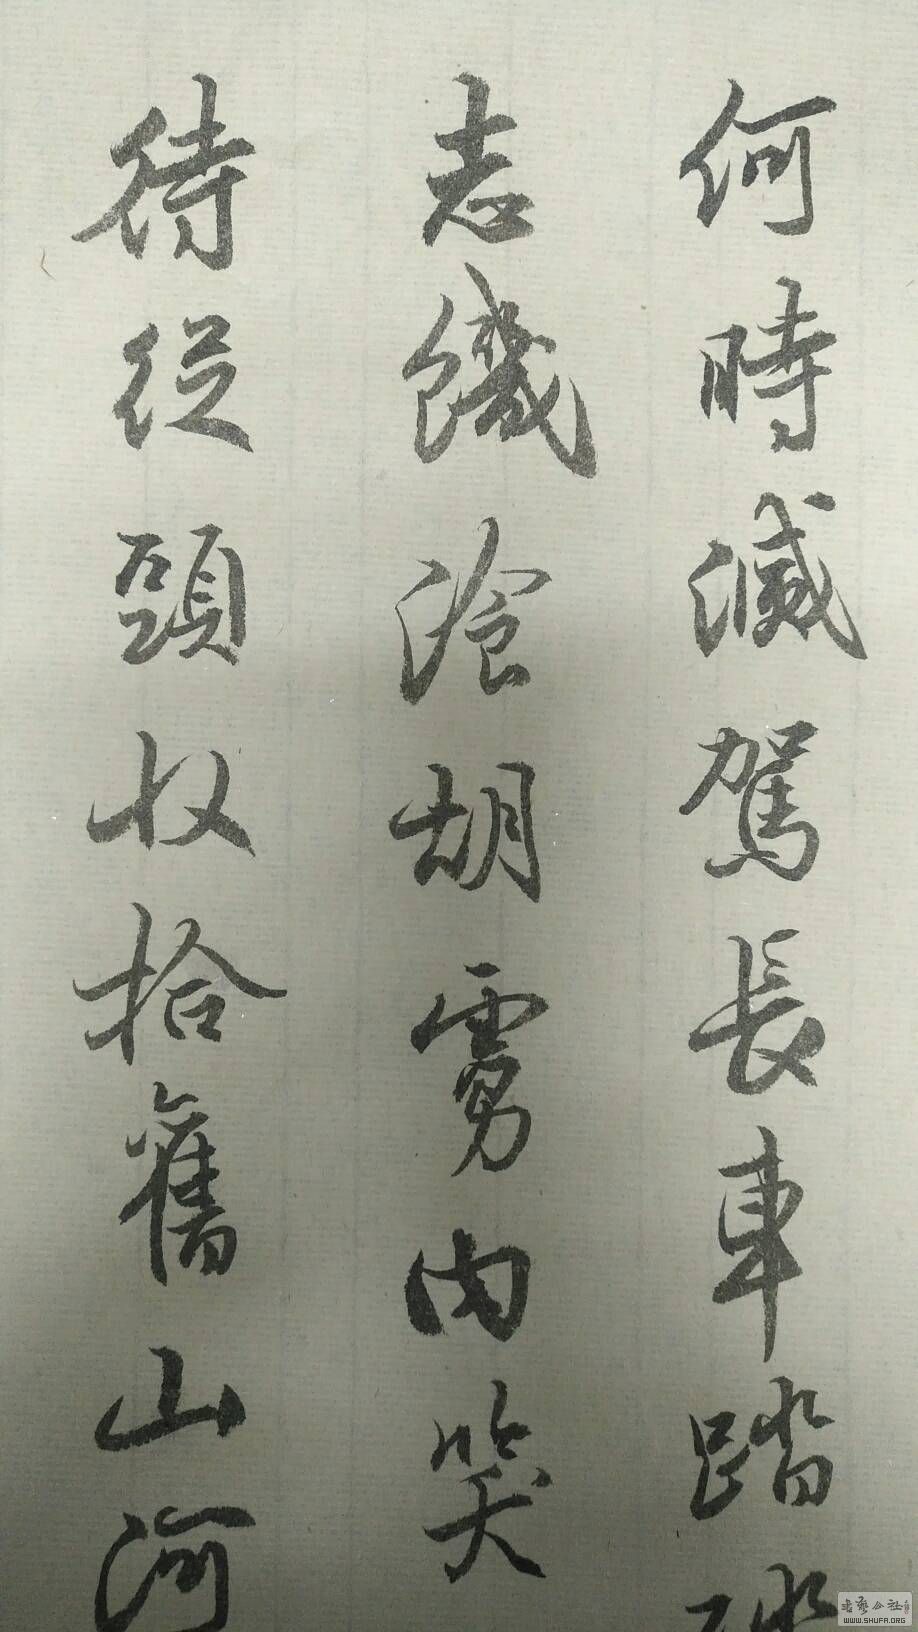 何時滅駕長車踏
志饑湌胡虜肉笑
待從頭收拾舊山河
书艺公社
WWW.SHUFA.ORG